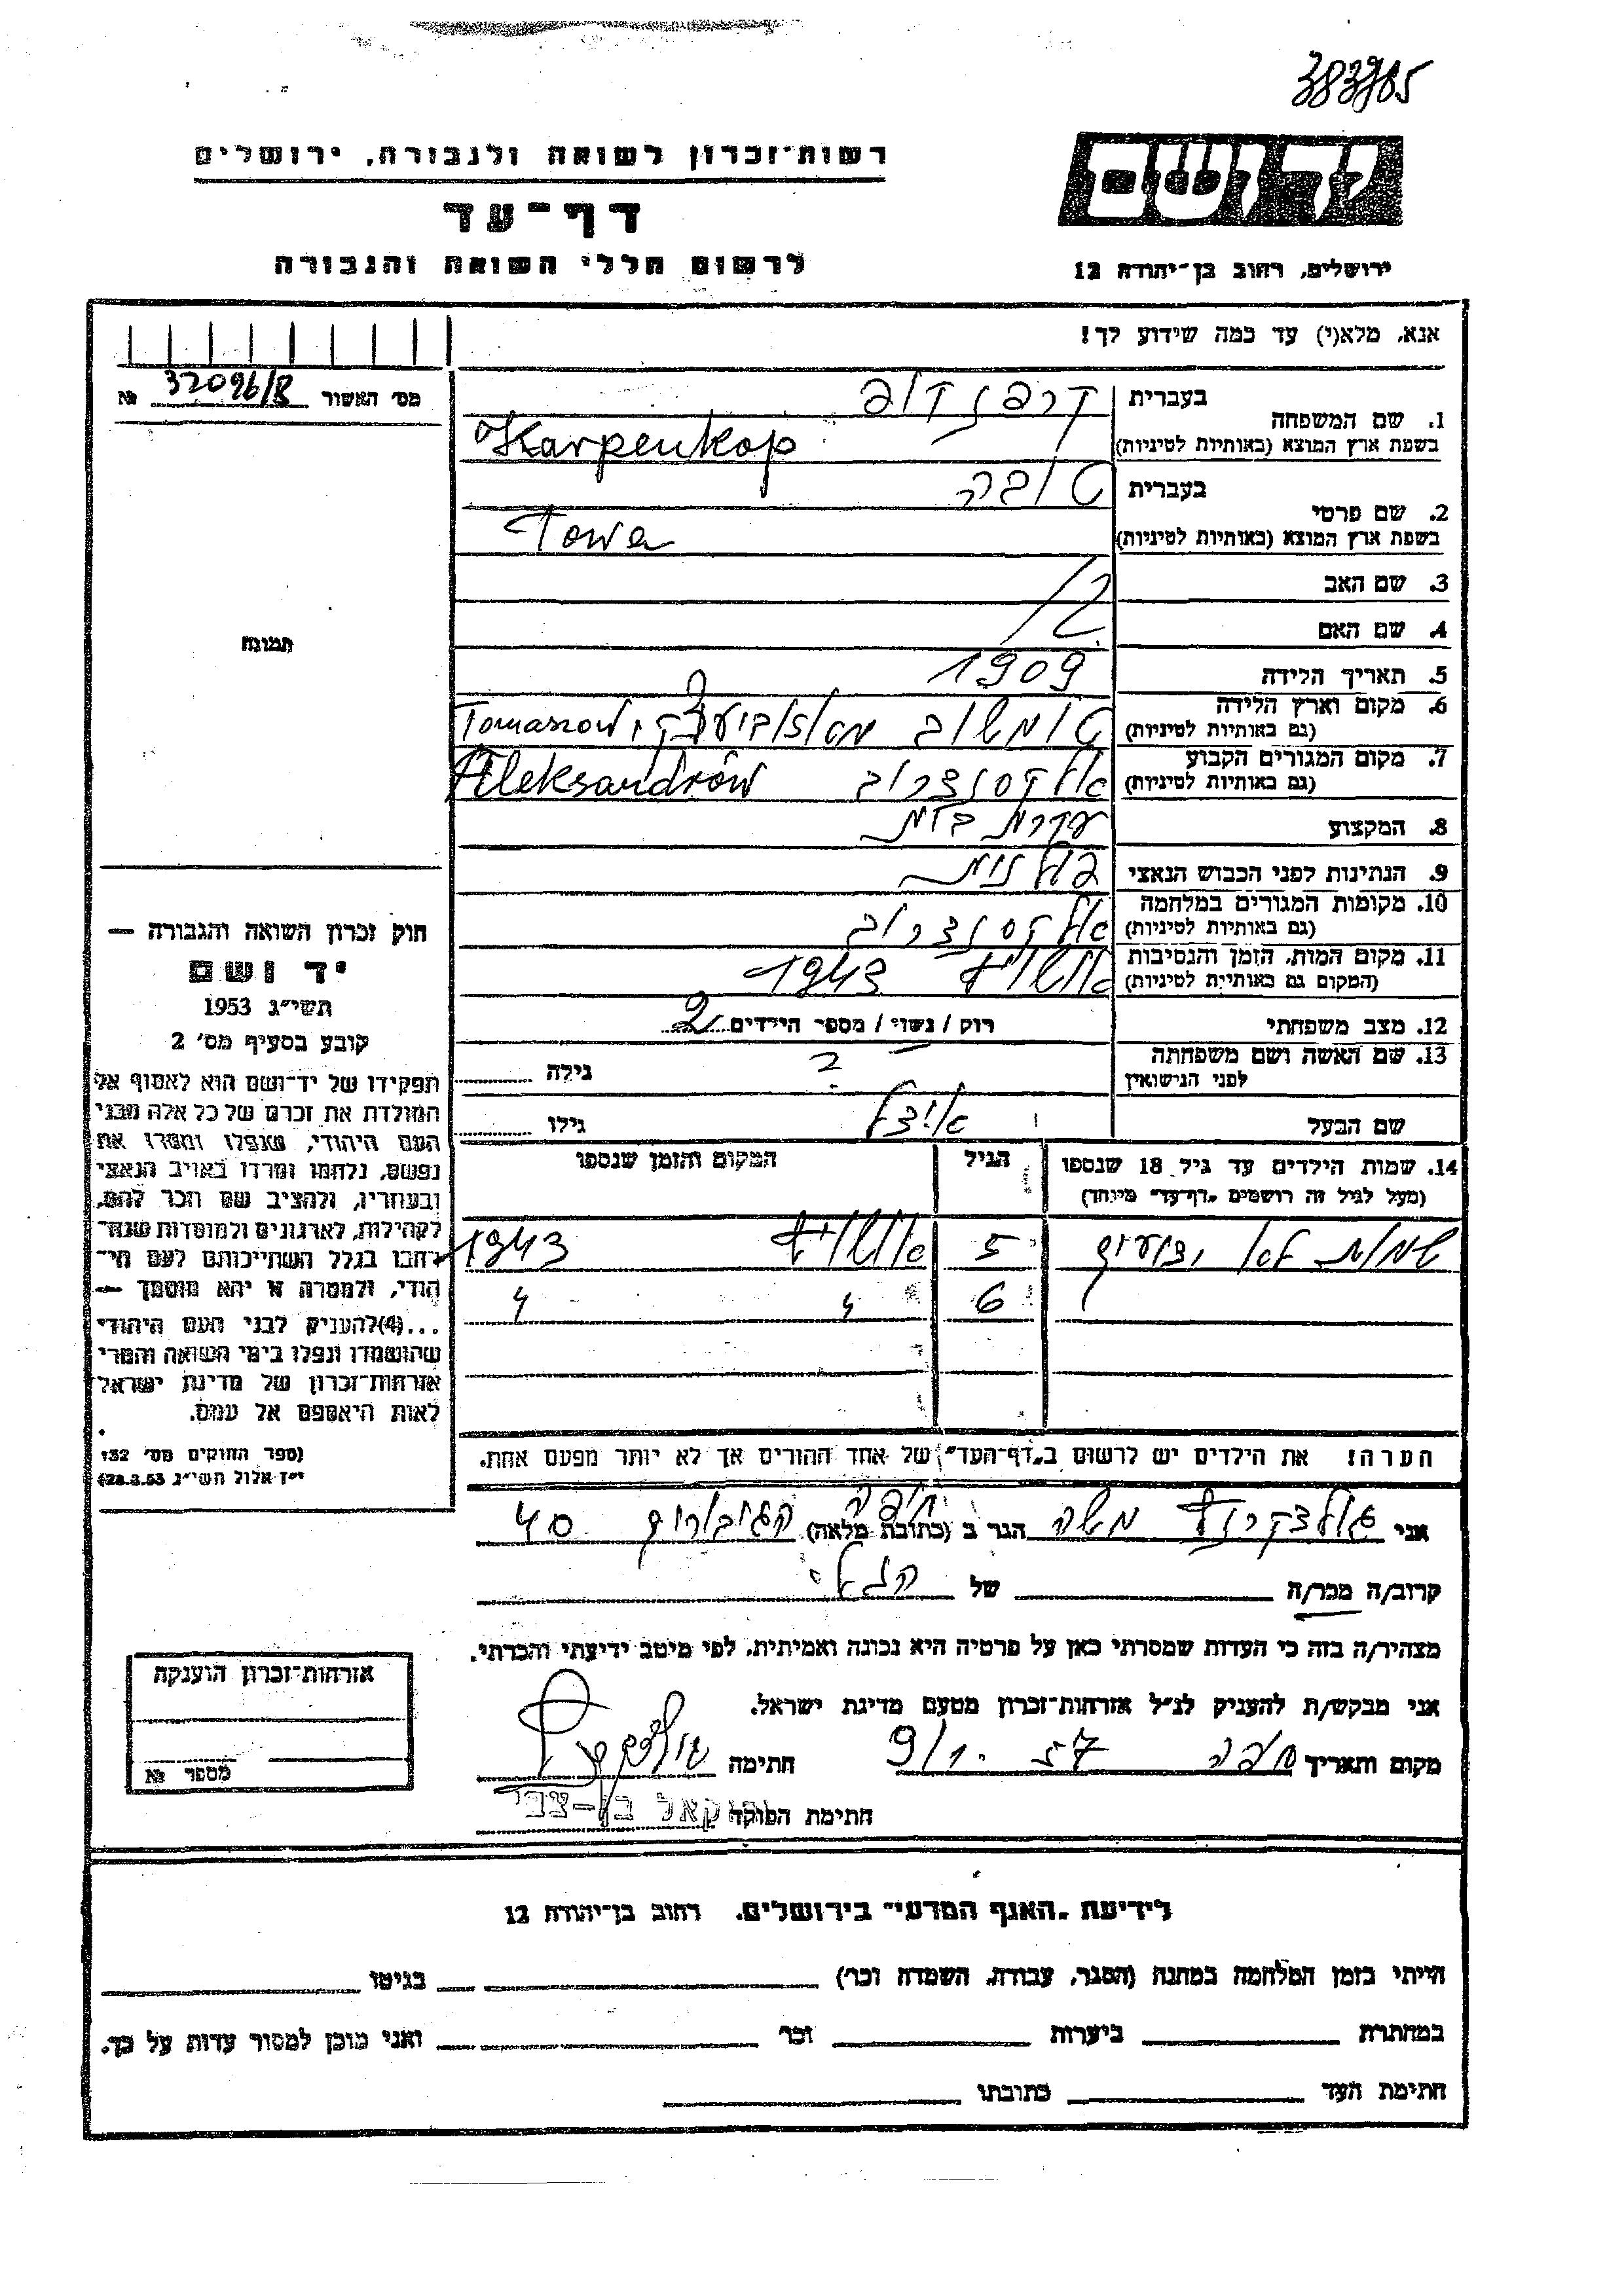 383985
יד ושם
רשות־זכרון לשואה ולגבורה, ירושלים
דף־עד
לרשום חללי השואה והגבורה
ירושלים, רחוב בן־יהודה 12
אנא, מלא(י) עד כמה שידוע לך!
מס׳ האשור 32096/8 №
תמונה
1. שם המשפחה
בעברית קרפנקופ
בשפת ארץ המוצא (באותיות לטיניות) Karpenkop
2. שם פרטי
בעברית טובה
בשפת ארץ המוצא (באותיות לטיניות) Towa
3. שם האב
4. שם האם
5. תאריך הלידה 1909
6. מקום וארץ הלידה
(גם באותיות לטיניות) טומשוב Tomaszow
7. מקום המגורים הקבוע
(גם באותיות לטיניות) אלקסנדרוב Aleksandrów
8. המקצוע עקרת בית
9. הנתינות לפני הכבוש הנאצי פולנית
10. מקומות המגורים במלחמה
(גם באותיות לטיניות) אלקסנדרוב
11. מקום המות, הזמן והנסיבות
(המקום גם באותיות לטיניות) אושויץ 1943
12. מצב משפחתי רוק / נשוי / מספר הילדים 2
13. שם האשה ושם משפחתה
לפני הנישואין ? גילה
שם הבעל אייזל גילו
14. שמות הילדים עד גיל 18 שנספו
(מעל לגיל זה רושמים „דף־עד״ מיוחד)
הגיל
המקום והזמן שנספו
שמות לא ידועים 5 אושויץ 1943
6 " "
הערה! את הילדים יש לרשום ב„דף־העד״ של אחד ההורים אך לא יותר מפעם אחת.
חוק זכרון השואה והגבורה —
יד ושם
תשי״ג 1953
קובע בסעיף מס׳ 2
תפקידו של יד־ושם הוא לאסוף אל
המולדת את זכרם של כל אלה מבני
העם היהודי, שנפלו ומסרו את
נפשם, נלחמו ומרדו באויב הנאצי
ובעוזריו, ולהציב שם וזכר להם,
לקהילות, לארגונים ולמוסדות שנח־
רבו בגלל השתייכותם לעם הי־
הודי, ולמטרה זו יהא מוסמך —
...(4)להעניק לבני העם היהודי
שהושמדו ונפלו בימי השואה והמרי
אזרחות־זכרון של מדינת ישראל
לאות היאספם אל עמם.
(ספר החוקים מס׳ 132
י״ז אלול תשי״ג 28.8.53)
אני גולדקרנץ משה הגר ב (כתובת מלאה) חיפה הגיבורים 40
קרוב/ה מכר/ה של הנ״ל
מצהיר/ה בזה כי העדות שמסרתי כאן על פרטיה היא נכונה ואמיתית, לפי מיטב ידיעתי והכרתי.
אני מבקש/ת להעניק לנ״ל אזרחות־זכרון מטעם מדינת ישראל.
מקום ותאריך חיפה 9/1. 57 חתימה
חתימת הפוקד
אזרחות־זכרון הוענקה
מספר №
לידיעת „האגף המדעי״ בירושלים, רחוב בן־יהודה 12
הייתי בזמן המלחמה במחנה (הסגר, עבודה, השמדה וכר׳) בגיטו
במחתרת ביערות וכר׳ ואני מוכן למסור עדות על כך.
חתימת העד כתובתו